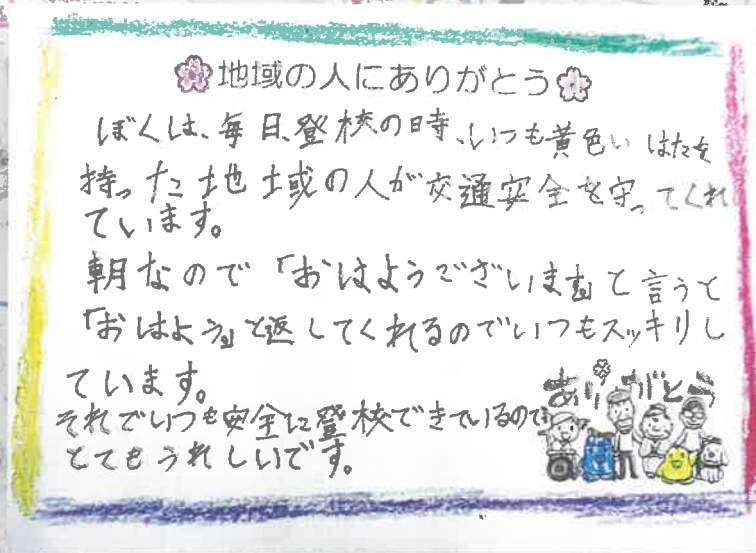 地域の人にありがとう
ぼくは、毎日、登校の時、いつも黄色いはたを
持った地域の人が交通安全を守ってくれ
ています。
朝なので「おはようございます」と言うと
「おはよう」と返してくれるのでいつもスッキリし
ています。
それでいつも安全に登校できているので
とてもうれしいです。
ありがとう